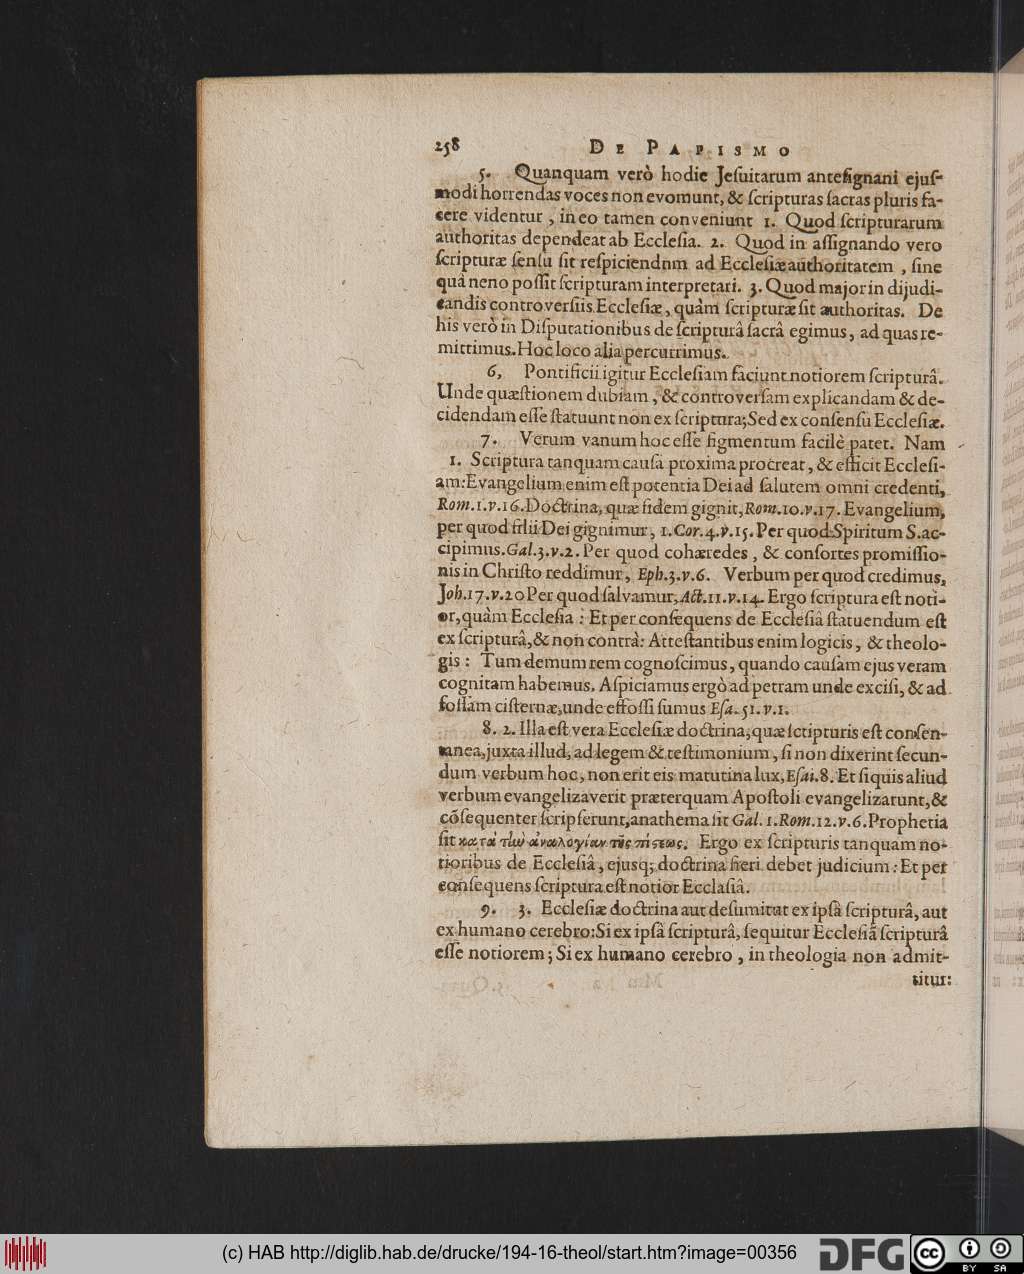 258 DE PAPISMO
5. Quanquam verò hodie Jeſuitarum anteſignani ejuſ-
modi horrendas voces non evomunt, & ſcripturas ſacras pluris fa-
cere videntur, in eo tamen conveniunt 1. Quod ſcripturarum
authoritas dependeat ab Eccleſia. 2. Quod in aſſignando vero
ſcripturæ ſenſu ſit reſpiciendnm ad Eccleſiæ authoritatem, ſine
quâ neno poſſit ſcripturam interpretari. 3. Quod major in dijudi-
candis controverſiis Eccleſiæ, quàm ſcripturæ ſit authoritas. De
his verò in Diſputationibus de ſcripturâ ſacrâ egimus, ad quas re-
mittimus. Hoc loco alia percurrimus.
6, Pontificii igitur Eccleſiam faciunt notiorem ſcripturâ.
Unde quæſtionem dubiam, & controverſam explicandam & de-
cidendam eſſe ſtatuunt non ex ſcriptura; Sed ex conſenſu Eccleſiæ.
7. Verum vanum hoc eſſe figmentum facilè patet. Nam
1. Scriptura tanquam cauſa proxima procreat, & efficit Eccleſi-
am: Evangelium enim eſt potentia Dei ad ſalutem omni credenti,
Rom. 1. v. 16. Doctrina, quæ fidem gignit, Rom. 10. v. 17. Evangelium,
per quod filii Dei gignimur, 1. Cor. 4. v. 15. Per quod Spiritum S. ac-
cipimus. Gal. 3. v. 2. Per quod cohæredes, & conſortes promiſſio-
nis in Chriſto reddimur, Eph. 3. v. 6. Verbum per quod credimus,
Joh. 17. v. 20 Per quod ſalvamur, Act. 11. v. 14. Ergo ſcriptura eſt noti-
or, quàm Eccleſia: Et per conſequens de Eccleſiâ ſtatuendum eſt
ex ſcripturâ, & non contrà: Atteſtantibus enim logicis, & theolo-
gis: Tum demum rem cognoſcimus, quando cauſam ejus veram
cognitam habemus. Aſpiciamus ergò ad petram unde exciſi, & ad
foſſam ciſternæ, unde effoſſi ſumus Eſa. 51. v. 1.
8. 2. Illa eſt vera Eccleſiæ doctrina, quæ ſctipturis eſt conſen-
tanea, juxta illud, ad legem & teſtimonium, ſi non dixerint ſecun-
dum verbum hoc, non erit eis matutina lux, Eſai. 8. Et ſiquis aliud
verbum evangelizaverit præterquam Apoſtoli evangelizarunt, &
cõſequenter ſcripſerunt, anathema ſit Gal. 1. Rom. 12. v. 6. Prophetia
ſit κατὰ τὴν ἀναλογίαν τῆς πίστεως. Ergo ex ſcripturis tanquam no-
tioribus de Eccleſiâ, ejusq; doctrina fieri debet judicium: Et per
conſequens ſcriptura eſt notior Ecclaſiâ.
9. 3. Eccleſiæ doctrina aut deſumitur ex ipſâ ſcripturâ, aut
ex humano cerebro: Si ex ipſâ ſcripturâ, ſequitur Eccleſiâ ſcripturâ
eſſe notiorem; Si ex humano cerebro, in theologia non admit-
titur:
(c) HAB http://diglib.hab.de/drucke/194-16-theol/start.htm?image=00356
DFG
cc BY SA